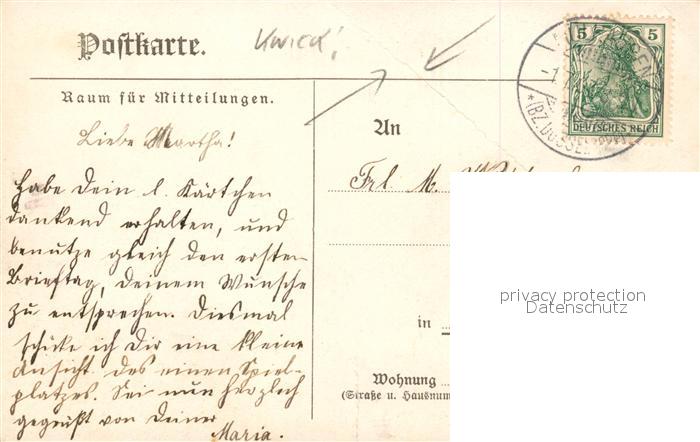 Postkarte.
Kwieck!
5 5
DEUTSCHES REICH
*(BZ. DÜSSELDORF)
Raum für Mitteilungen.
An
Liebe Martha!
Frl. M.
Habe Dein l. Kärtchen
dankend erhalten, und
benutze gleich den ersten
Brieftag, Deinem Wunsche
zu entsprechen. Diesmal
schicke ich Dir eine kleine
Ansicht des einen Spiel-
platzes. Sei nun herzlich
gegrüßt von Deiner
Maria.
in
Wohnung
(Straße u. Hausnum
privacy protection
Datenschutz